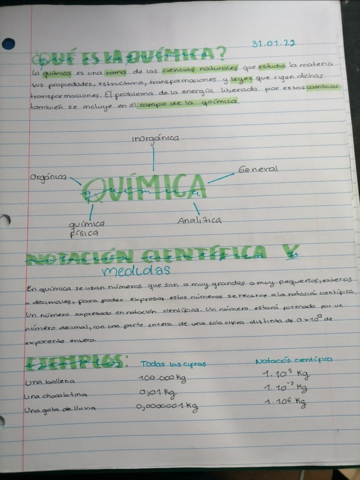 ¿QUÉ ES LA QUÍMICA?
31.01.22
La química es una rama de las ciencias naturales que estudia la materia
sus propiedades, estructura, transformaciones y leyes que rigen dichas
transformaciones. El problema de la energía liberada por estos cambios
también se incluye en el campo de la química.
Inorgánica
Orgánica
General
QUÍMICA
química
física
Analítica
NOTACIÓN CIENTÍFICA Y
medidas
En química se usan números que son o muy grandes o muy pequeños, enteros
o decimales, para poder expresar estos números se recurre a la notación científica.
Un número expresado en notación científica. Un número estará formado por un
número decimal, con una parte entera de una sola cifra distinta de 0 x 10ⁿ de
exponente entero.
EJEMPLOS:
Todas las cifras
Notación científica
Una ballena
100.000 Kg
Kg
Una chocolatina
Kg
Kg
Una gota de lluvia
Kg
Kg